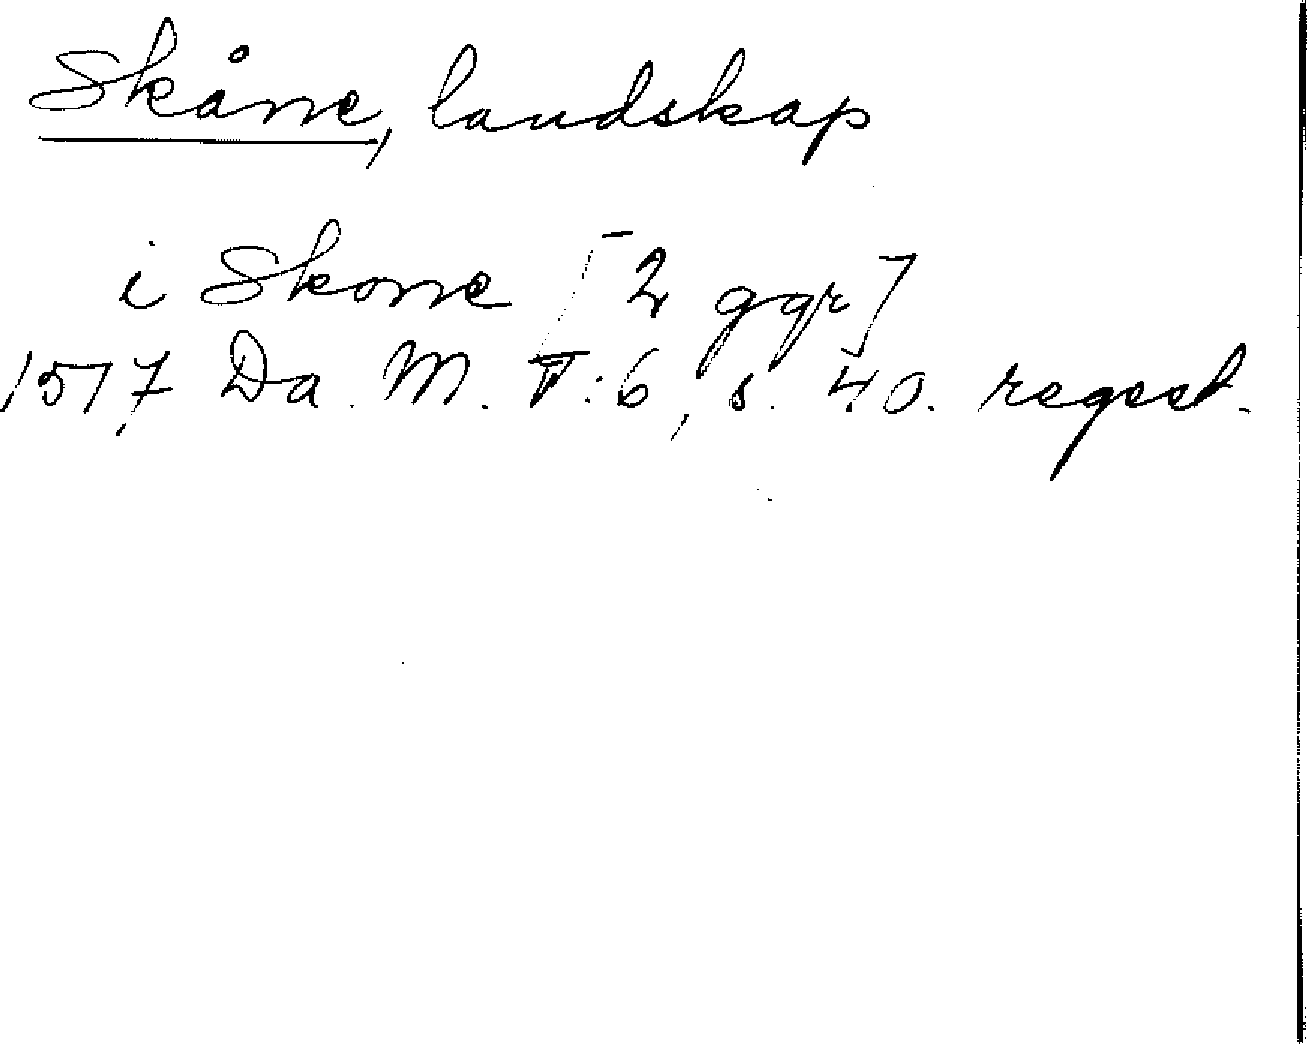 Skåne, landskap
i Skone [2 ggr]
1517 Da. M. V:6, s. 40. regest.